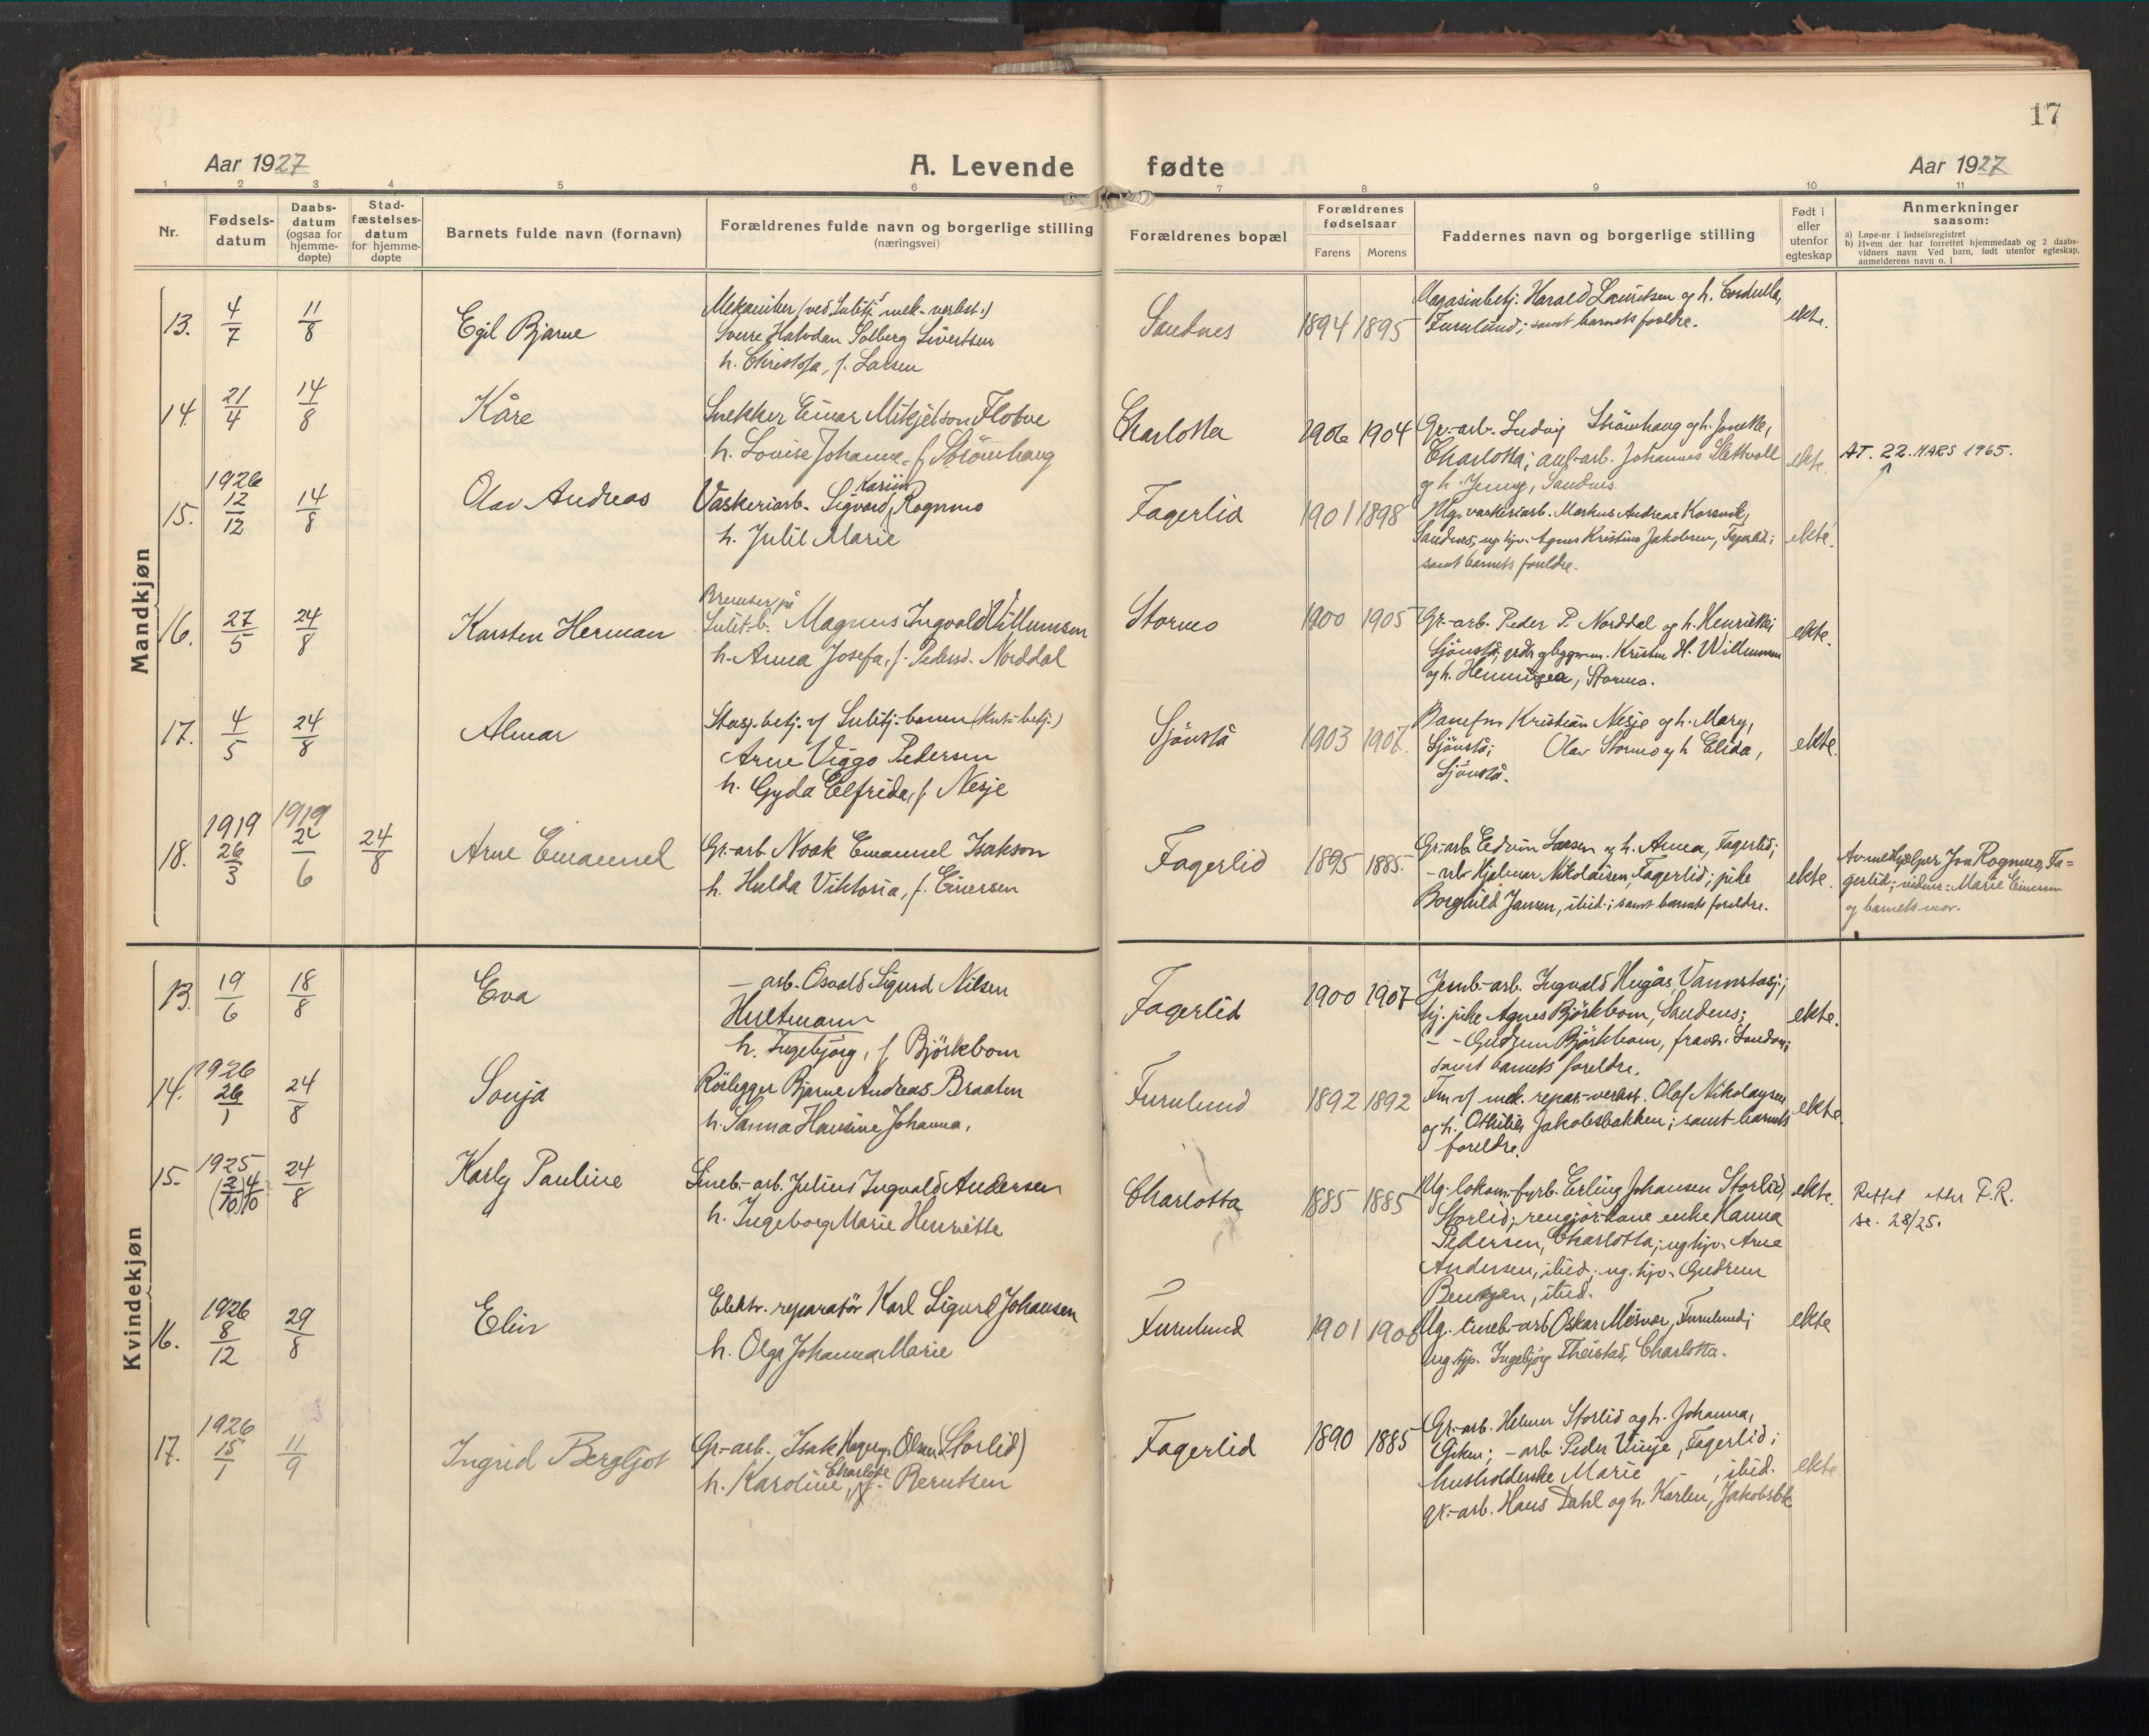 17
Aar 1927
A. Levende fødte
Aar 1927
1 2 3 4 5 6 7 8 9 10 11
Nr.
Fødsels-
datum
Daabs-
datum
(ogsaa for
hjemme-
døpte)
Stad-
fæstelses-
datum
for hjemme-
døpte
Barnets fulde navn (fornavn)
Forældrenes fulde navn og borgerlige stilling
(næringsvei)
Forældrenes bopæl
Forældrenes
fødselsaar
Farens Morens
Faddernes navn og borgerlige stilling
Født i
eller
utenfor
egteskap
Anmerkninger
saasom:
a) Løpe-nr. i fødselsregistret
b) Hvem der har forrettet hjemmedaab og 2 daabs-
vidners navn Ved barn, født utenfor egteskap,
anmelderens navn o. l
Mandkjøn
13. 4/7 11/8
Egil Bjarne
Mekaniker (ved Sulitj. mek. verkst.)
Sverre Halvdan Solberg Sivertsen
h. Christofa, f. Larsen
Sandnes
1894 1895
Magasinbetj. Harald Lauritsen og h. Cordulla,
Furulund; samt barnets foreldre.
ekte.
14. 21/4 14/8
Kåre
Snekker Einar Mikjelson Flotve
h. Lovise Johanne f. Strömhaug
Charlotta
1906 1904
Gr.-arb. Ludvig Strömhaug og h. Jonette,
Charlotta; anl.-arb. Johannes Slettvoll
og h. Jenny, Sandnes.
ekte.
AT. 22. MARS 1965.
15. 1926 12/12 14/8
Olav Andreas
Kariin
Vaskeriarb. Sigvard Rognmo
h. Julie Marie
Fagerlid
1901 1898
Ug. vaskeriarb. Markus Andreas Korsvik,
Sandnes; ug. hjv. Agnes Kristine Jakobsen, Fagerlid;
samt barnets foreldre.
ekte.
16. 27/5 24/8
Karsten Herman
Bremser på
Sulit-b. Magnus Ingvald Villumsen
h. Anna Josefa, f. Pedersd. Norddal
Stormo
1900 1905
Gr.-arb. Peder P. Norddal og h. Henrikke,
Sjönstå; Kristen H. Willumsen
og h. Henningea, Stormo.
ekte.
17. 4/5 24/8
Almar
Stasj.-betj. v/ Sulitj.-banen (Knt-betj.)
Arne Viggo Pedersen
h. Gyda Elfrida, f. Nesje
Sjönstå
1903 1907.
Banefm Kristian Nesje og h. Mary,
Sjönstå; Olav Stormo og h. Elida,
Sjönstå.
ekte.
18. 1919 26/3 1919 2/6 24/8
Arne Emanuel
Gr.-arb. Noak Emanuel Isakson
h. Hulda Viktoria, f. Einersen
Fagerlid
1895 1885.
Gr.-arb. Edvin Larsen og h. Anna, Fagerlid;
- arb. Hjalmar Nikolaisen, Fagerlid; pike
Borghild Jansen, ibid.; samt barnets foreldre.
ekte.
Avmelhjelper Jon Rognmo, Fa-
gerlid; vidner: Marie Einersen
og barnets mor.
Kvindekjøn
13. 19/6 18/8
Eva
- arb. Osvald Sigurd Nilsen
Hultmann
h. Ingebjørg, f. Björkbom
Fagerlid
1900 1907
Jernb.-arb. Ingvald Hugås, Vannstasj.;
hj. pike Agnes Björkbom, Sandnes;
- - Gudrun Björkbom, fravær. Sandn.;
samt barnets foreldre.
ekte.
14. 1926 26/1 24/8
Sonja
Rörlegger Bjarne Andreas Braaten
h. Sanna Hansine Johanna.
Furulund
1892 1892
Fm. v/ mek. repar.-verkst. Olaf Nikolaysen
og h. Othilie, Jakobsbakken; samt barnets
foreldre.
ekte.
15. 1925 (2/10) 4/10 24/8
Karly Pauline
Lineb.-arb. Julius Ingvald Andersen
h. Ingeborg Marie Henrikke
Charlotta
1885 1885
Ug. lokom.-fyrb. Erling Johansen Storlid,
Storlid; rengjör.-kone enke Hanna
Pedersen, Charlotta; ug. hjv. Arne
Andersen, ibid.; ug. hjv. Gudrun
Bentzen, ibid.
ekte.
Rettet etter F.R.
se. 28/25.
16. 1926 8/12 29/8
Elin
Elektr. reparatör Karl Sigurd Johansen
h. Olga Johanna Marie
Furulund
1901 1900
Ug. lineb.-arb Oskar Misvær, Furulund;
ug. tjp. Ingebjörg Theistad, Charlotta.
ekte
17. 1926 15/1 11/9
Ingrid Bergljot
Gr.-arb. Isak Olsen (Storlid)
Charlotte
h. Karoline, f. Berntsen
Fagerlid
1890 1885
Gr.-arb. Helmer Storlid og h. Johanna,
Giken; - arb. Peder Vinje, Fagerlid;
husholderske Marie - , ibid.
gr.-arb. Hans Dahl og h. Karlen, Jakobsbk
ekte.